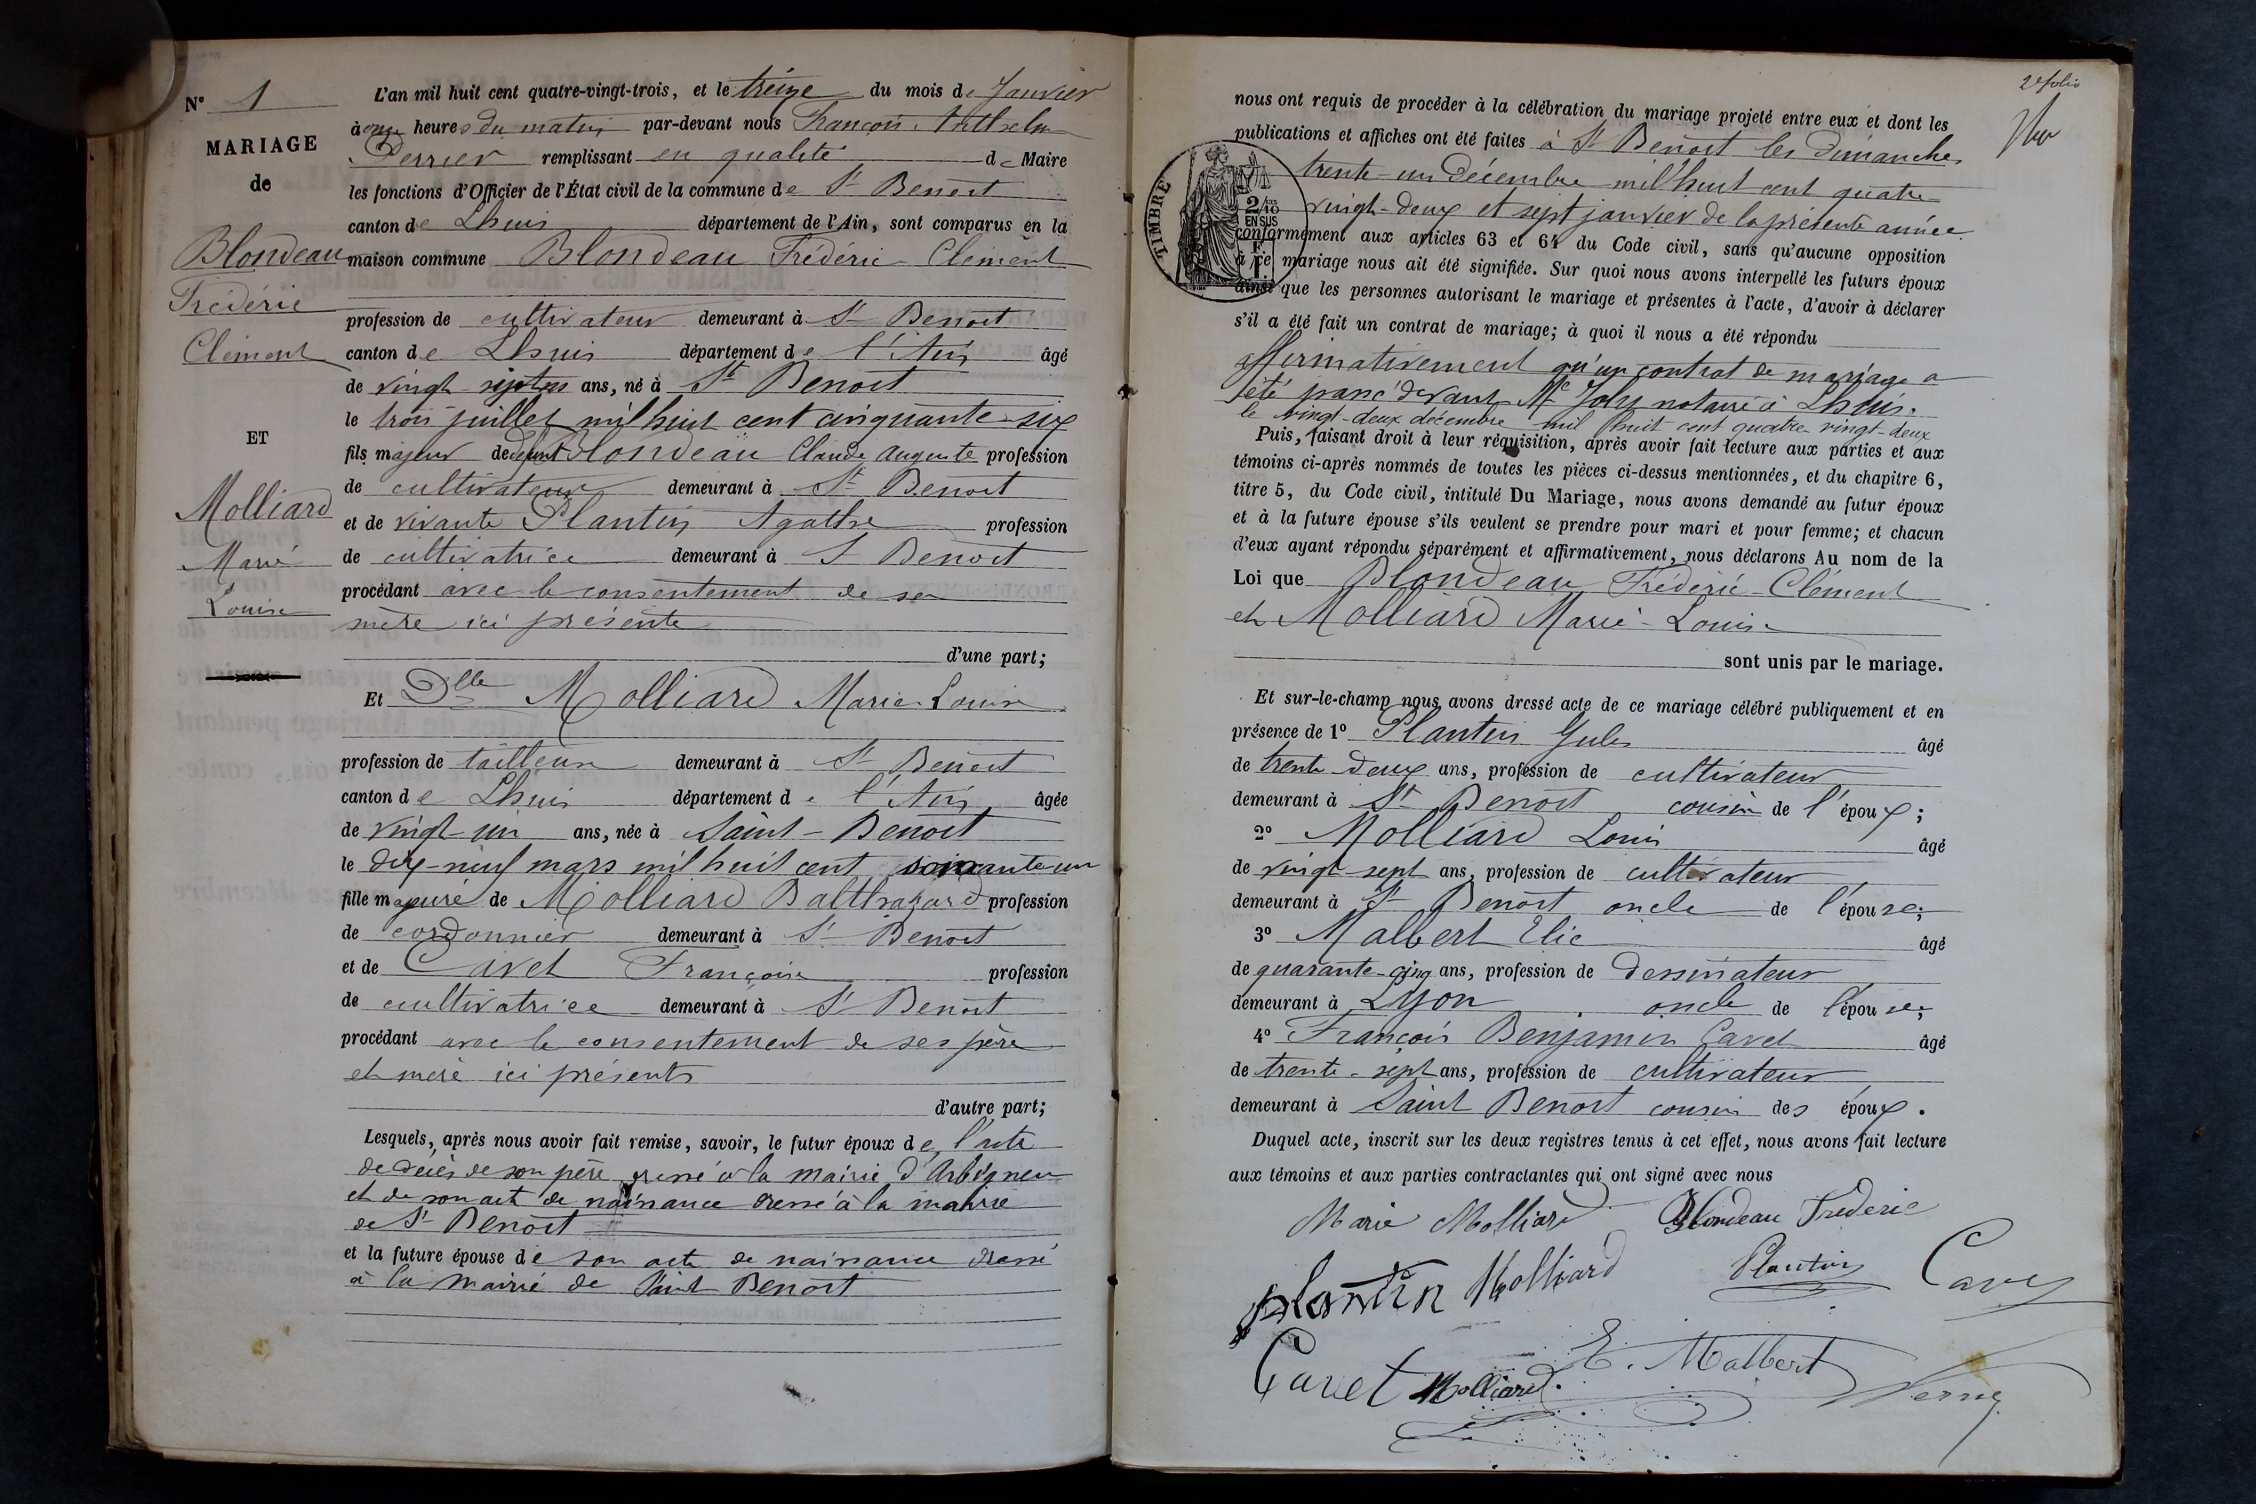 N° 1
MARIAGE
de
Blondeau
Frédéric
Clément
ET
Molliard
Marie
Louise
L'an mil huit cent quatre-vingt-trois, et le treize du mois de Janvier
à onze heures du matin par-devant nous François Anthelme
Perrier remplissant en qualité de Maire
les fonctions d'Officier de l'État civil de la commune de St Benoit
canton de Lhuis département de l'Ain, sont comparus en la
maison commune Blondeau Frédéric Clément
profession de cultivateur demeurant à St Benoit
canton de Lhuis département de l'Ain âgé
de vingt-six ans, né à St Benoit
le trois juillet mil huit cent cinquante-six
fils majeur de défunt Blondeau Claude Auguste profession
de cultivateur demeurant à St Benoit
et de vivante Plantin Agathe profession
de cultivatrice demeurant à St Benoit
procédant avec le consentement de sa
mère ici présente
d'une part;
Et Dlle Molliard Marie-Louise
profession de tailleuse demeurant à St Benoit
canton de Lhuis département de l'Ain âgée
de vingt-un ans, née à Saint-Benoit
le dix-neuf mars mil huit cent soixante-un
fille majeure de Molliard Balthazard profession
de cordonnier demeurant à St Benoit
et de Cavet Françoise profession
de cultivatrice demeurant à St Benoit
procédant avec le consentement de ses père
et mère ici présents
d'autre part;
Lesquels, après nous avoir fait remise, savoir, le futur époux de l'acte
de décès de son père dressé à la mairie d'Arbigneu
et de son acte de naissance dressé à la mairie
de St Benoit
et la future épouse de son acte de naissance dressé
à la mairie de Saint Benoit
2e folio
nous ont requis de procéder à la célébration du mariage projeté entre eux et dont les
publications et affiches ont été faites à St Benoit les dimanches
trente-un Décembre mil huit cent quatre
vingt-deux et sept janvier de la présente année
TIMBRE
2/10
EN SUS
conformément aux articles 63 et 64 du Code civil, sans qu'aucune opposition
à ce mariage nous ait été signifiée. Sur quoi nous avons interpellé les futurs époux
ainsi que les personnes autorisant le mariage et présentes à l'acte, d'avoir à déclarer
s'il a été fait un contrat de mariage; à quoi il nous a été répondu
affirmativement qu'un contrat de mariage a
été passé devant Me Joly notaire à Lhuis.
le vingt-deux décembre mil huit cent quatre vingt-deux
Puis, faisant droit à leur réquisition, après avoir fait lecture aux parties et aux
témoins ci-après nommés de toutes les pièces ci-dessus mentionnées, et du chapitre 6,
titre 5, du Code civil, intitulé Du Mariage, nous avons demandé au futur époux
et à la future épouse s'ils veulent se prendre pour mari et pour femme; et chacun
d'eux ayant répondu séparément et affirmativement, nous déclarons Au nom de la
Loi que Blondeau Frédéric-Clément
et Molliard Marie-Louise
sont unis par le mariage.
Et sur-le-champ nous avons dressé acte de ce mariage célébré publiquement et en
présence de 1° Plantin Jules âgé
de trente deux ans, profession de cultivateur
demeurant à St Benoit cousin de l'époux;
2° Molliard Louis âgé
de vingt-sept ans, profession de cultivateur
demeurant à St Benoit oncle de l'épouse;
3° Malbert Elie âgé
de quarante-cinq ans, profession de dessinateur
demeurant à Lyon oncle de l'épouse;
4° François Benjamin Cavet âgé
de trente-sept ans, profession de cultivateur
demeurant à Saint Benoit cousin des époux.
Duquel acte, inscrit sur les deux registres tenus à cet effet, nous avons fait lecture
aux témoins et aux parties contractantes qui ont signé avec nous
Marie Molliard Blondeau Frederic
plantin Molliard Plantin Cavet
Cavet Molliard. E. Malbert